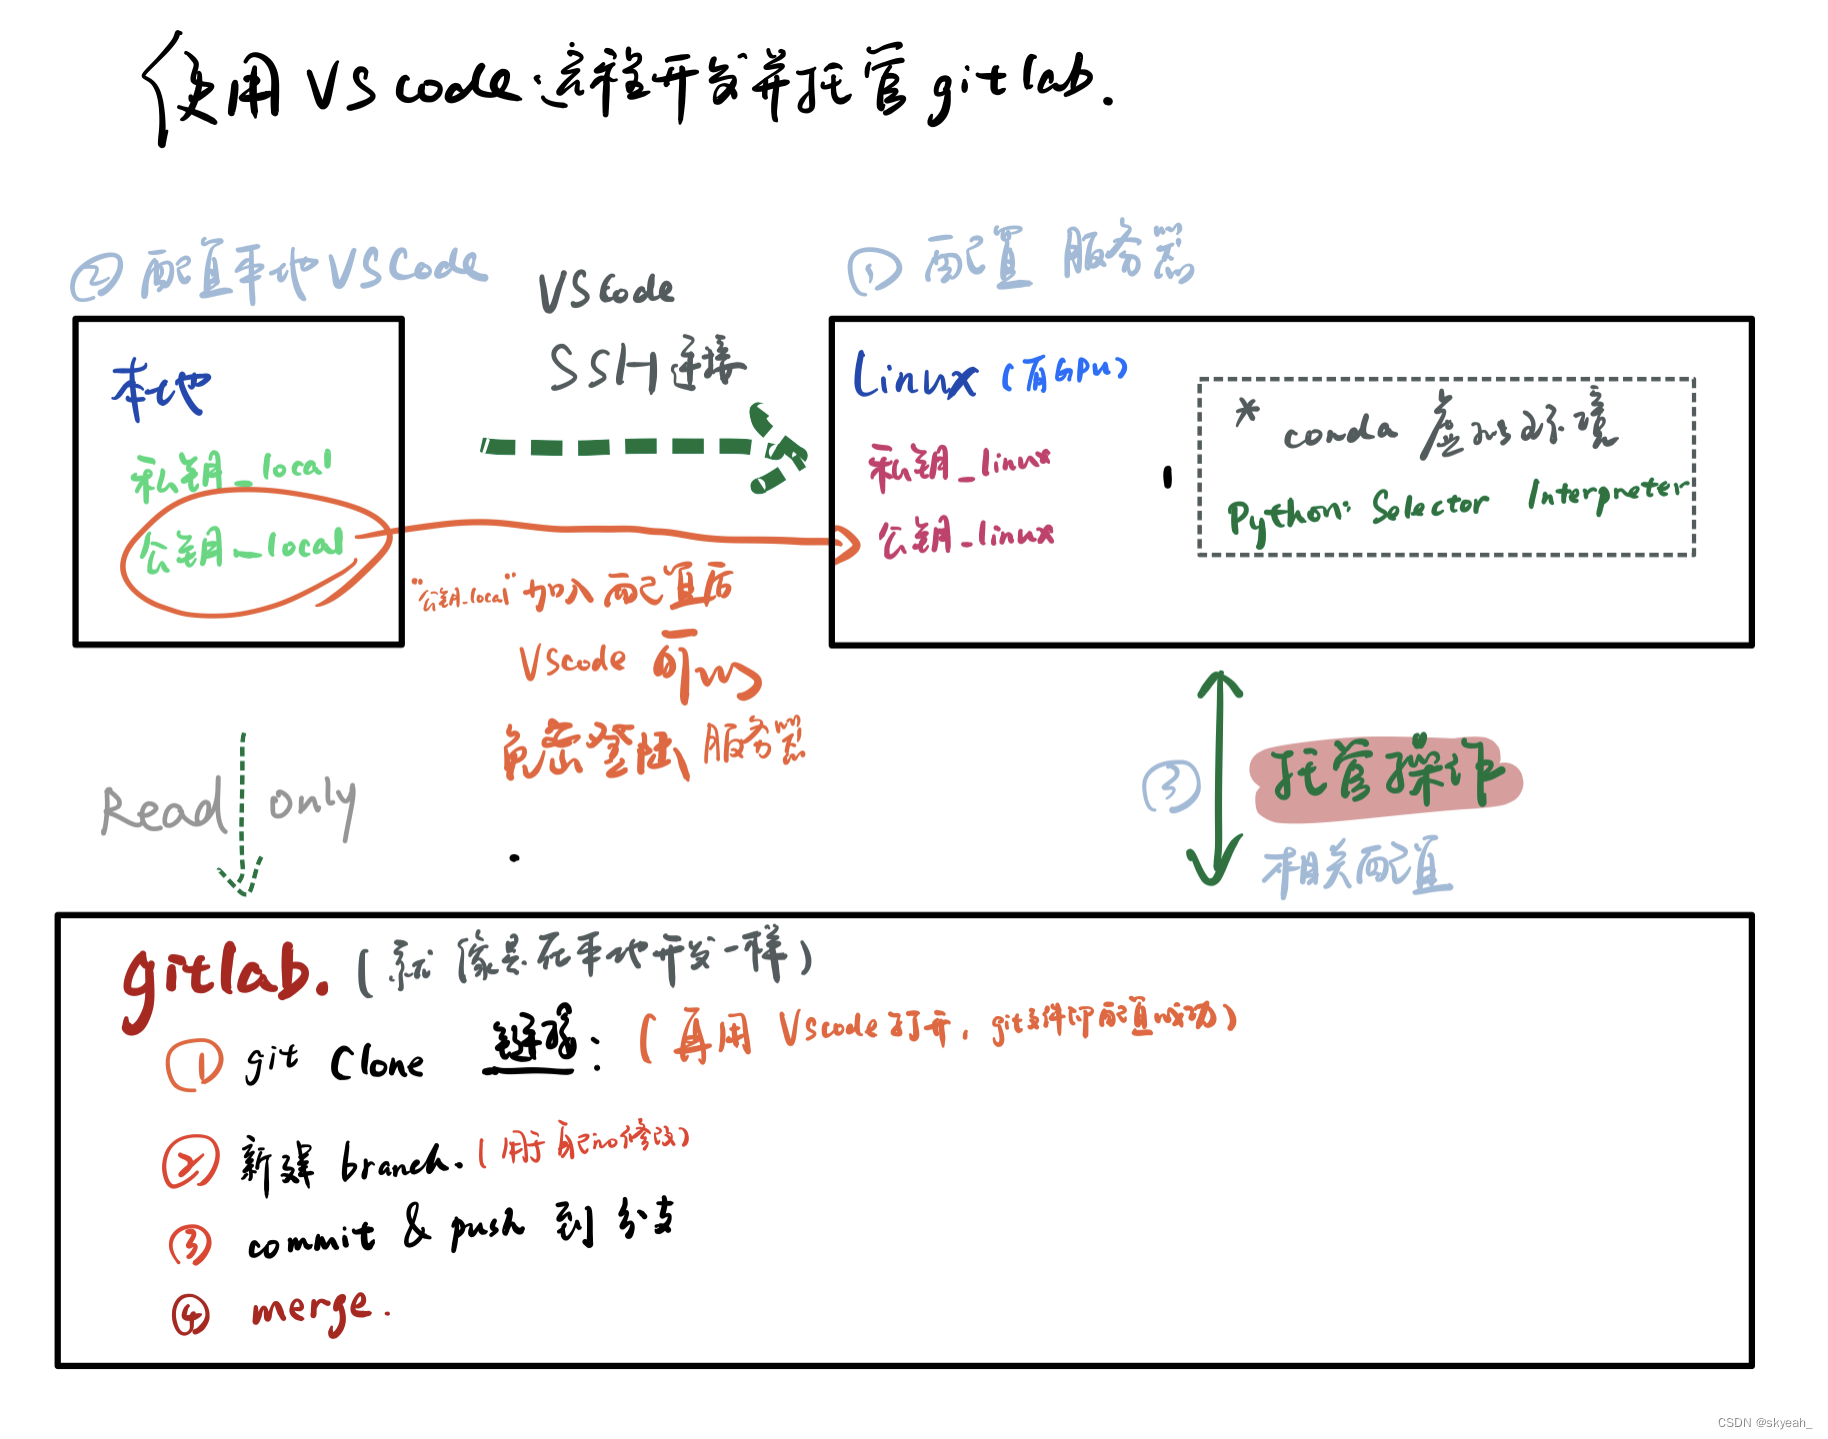 使用 VS code 远程开发并托管 gitlab.
② 配置本地 VSCode
VSCode
SSH 连接
① 配置 服务器
本地
私钥_local
公钥_local
Linux (有GPU)
私钥_linux
公钥_linux
* conda 虚拟环境
Python: Selector Interpreter
"公钥_local" 加入配置后
VScode 可以
免密登陆 服务器
Read only
③ 托管操作
相关配置
gitlab. (就像是在本地开发一样)
① git Clone 链接: (再用 VScode 打开, git文件即配置成功)
② 新建 branch. (用于自己的修改)
③ commit & push 到 分支
④ merge.
CSDN @skyeah_